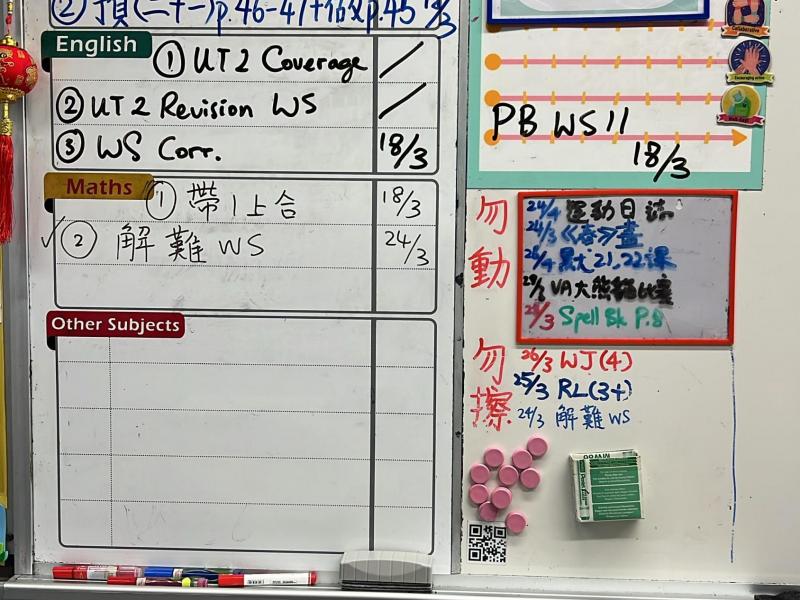 ② 預(二十一)p.46-47+ p.45 18/3
English
① UT2 Coverage /
② UT2 Revision WS /
③ WS Corr. 18/3
Maths
① 帶1上合 18/3
✓ ② 解難WS 24/3
Other Subjects
Collaborative
PB WS11
18/3
勿動
24/4 運動日誌
24/3
默尤21,22课
VA大熊貓比賽
Spell Bk P.8
勿擦
26/3 WJ(4)
25/3 RL(3+)
24/3 解難WS